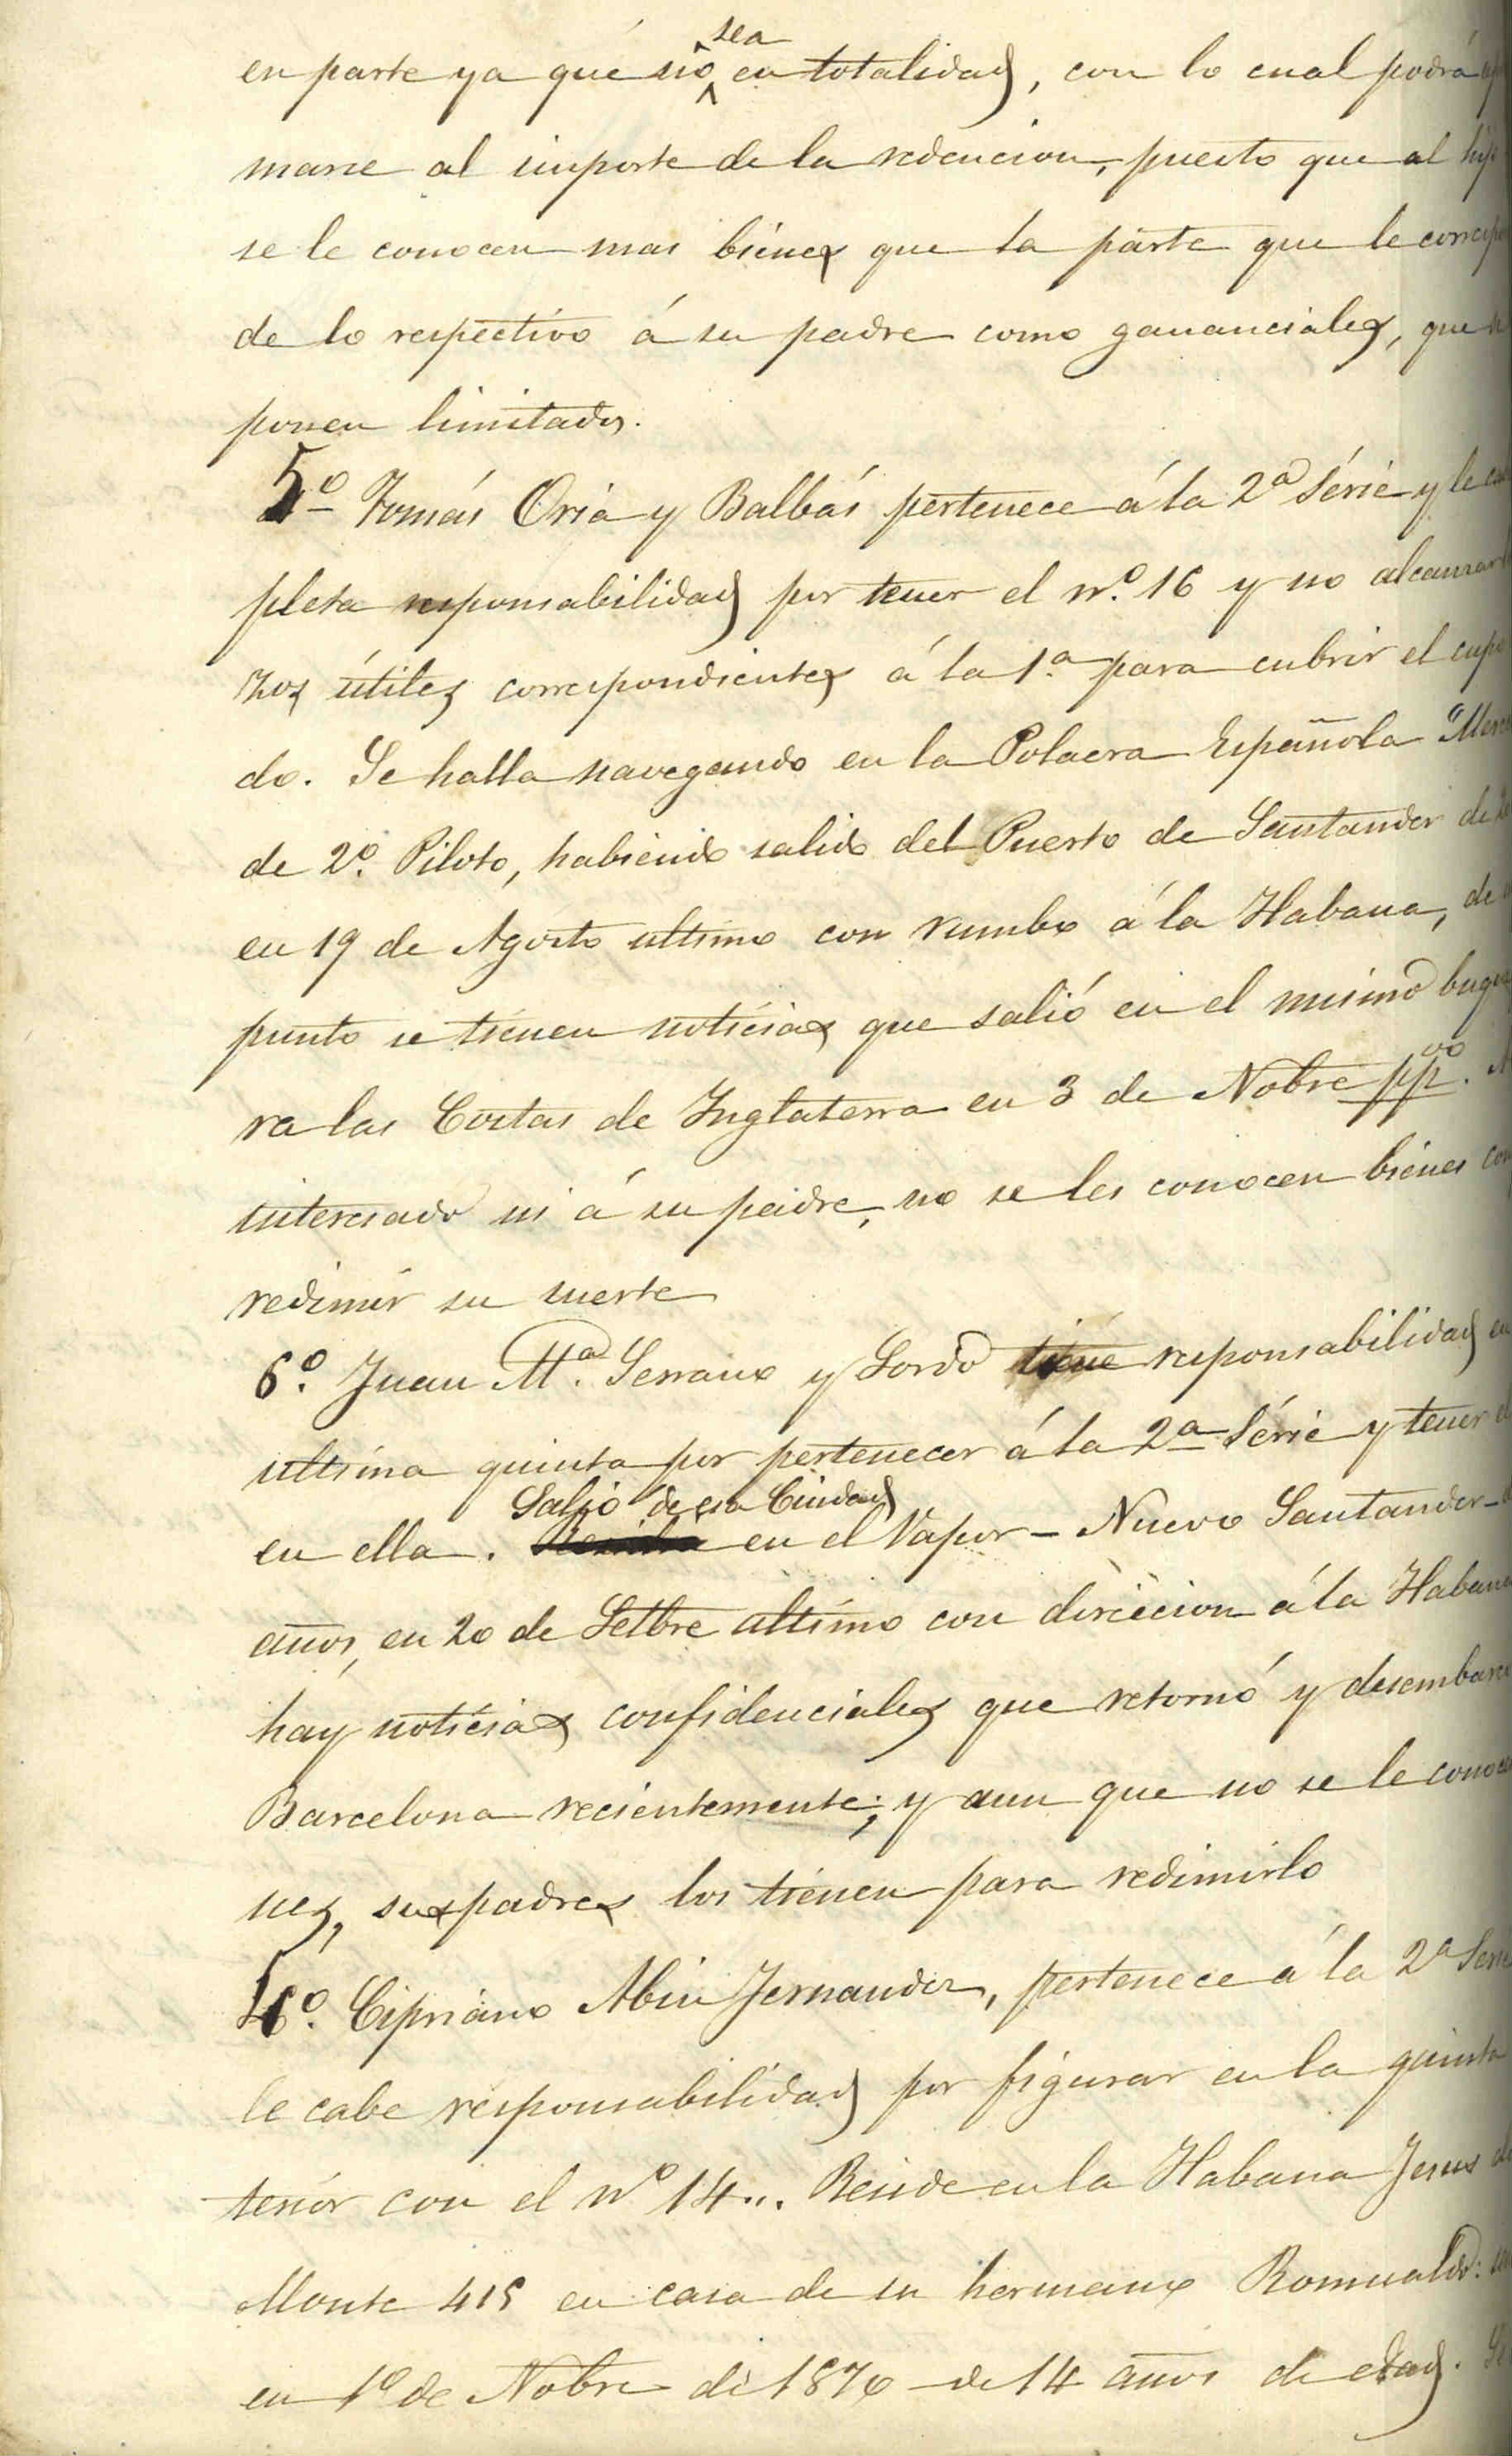 en parte ya que no sea en totalidad, con lo cual podrá
marse al importe de la redencion, puesto que al hijo
se le conocen mas biénes que la parte que le corresp
de lo respectivo á su padre como gananciales, que
ponen limitados.
5º Tomás Oria y Balbás pertenece á la 2ª Série y le
pleta responsabilidad por tener el nº. 16 y no alcanzar
zos útiles correspondientes á la 1.ª para cubrir el cupo
do. Se halla navegando en la Polacra Española "Merc
de 2º. Piloto, habiendo salido del Puerto de Santander de
en 19 de Agosto ultimo con rumbo á la Habana, de
punto se tienen noticias que salió en el mismo buque
ra las Costas de Inglaterra en 3 de Nobre ppº.
interesado ni á su padre, no se les conocen biénes con
redimir su suerte
6º. Juan Mª. Serrano y Sordo tiene responsabilidad en
ultima quinta por pertenecer á la 2ª Série y tener el
en ella. Salió de esa Ciudad en el Vapor – Nuevo Santander –
años, en 20 de Setbre ultimo con direccion á la Habana
hay noticias confidenciales que retornó y desembarcó
Barcelona recientemente; y aun que no se le conocen
nes, sus padres los tienen para redimirlo
4º. Cipriano Abin Fernandez, pertenece á la 2ª Serie
le cabe responsabilidad por figurar en la quinta
terior con el nº 14... Reside en la Habana Jesus del
Monte 415 en casa de su hermano Romualdo:
en 1º de Nobre de 1876 de 14 años de edad.